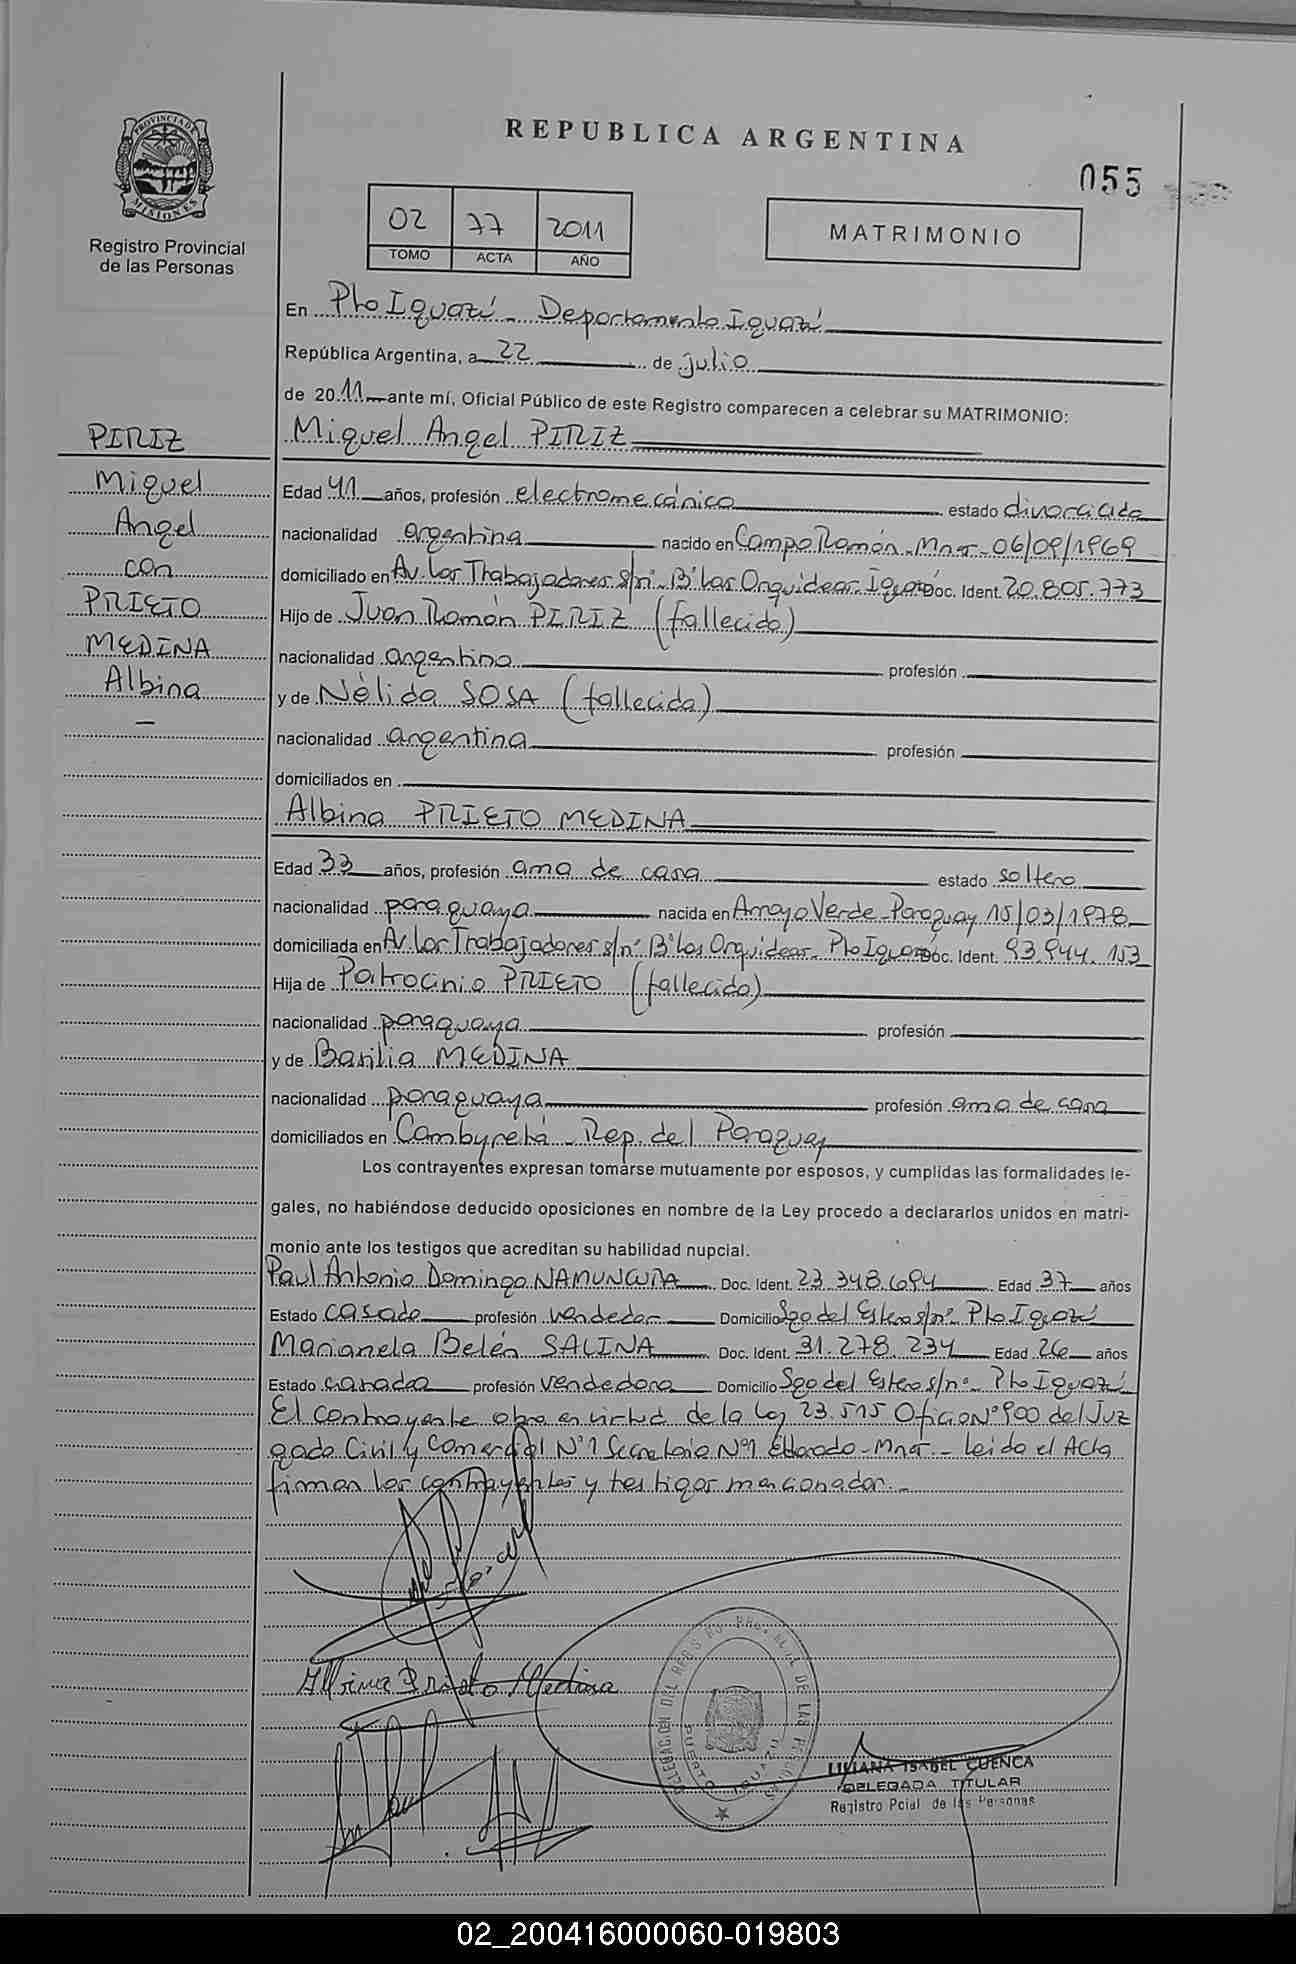 PROVINCIA DE
MISIONES
Registro Provincial
de las Personas
REPUBLICA ARGENTINA
055
02 77 2011
TOMO ACTA AÑO
MATRIMONIO
En Pto Iguazú - Departamento Iguazú
República Argentina, a 22 de julio
de 2011 ante mí, Oficial Público de este Registro comparecen a celebrar su MATRIMONIO:
PIRIZ
Miguel
Angel
con
PRIETO
MEDINA
Albina
Miguel Angel PIRIZ
Edad 41 años, profesión electromecánico estado divorciado
nacionalidad argentina nacido en Campo Ramón - Mnes - 06/09/1969
domiciliado en Av. Los Trabajadores s/n - B° Las Orquideas Iguazú Doc. Ident. 20.805.773
Hijo de Juan Ramón PIRIZ (fallecido)
nacionalidad argentina profesión
y de Nélida SOSA (fallecida)
nacionalidad argentina profesión
domiciliados en
Albina PRIETO MEDINA
Edad 33 años, profesión ama de casa estado soltera
nacionalidad paraguaya nacida en Arroyo Verde - Paraguay 15/03/1978
domiciliada en Av. Los Trabajadores s/n° B° Las Orquideas - Pto Iguazú Doc. Ident. 93.944.153
Hija de Patrocinio PRIETO (fallecido)
nacionalidad paraguaya profesión
y de Basilia MEDINA
nacionalidad paraguaya profesión ama de casa
domiciliados en Cambyretá - Rep. del Paraguay
Los contrayentes expresan tomarse mutuamente por esposos, y cumplidas las formalidades le-
gales, no habiéndose deducido oposiciones en nombre de la Ley procedo a declararlos unidos en matri-
monio ante los testigos que acreditan su habilidad nupcial.
Paul Antonio Domingo NAMUNCURA Doc. Ident. 23.348.694 Edad 37 años
Estado casado profesión vendedor Domicilio Sgo del Estero s/n° Pto Iguazú
Marianela Belén SALINA Doc. Ident. 31.278.234 Edad 26 años
Estado casada profesión vendedora Domicilio Sgo del Estero s/n° - Pto Iguazú
El contrayente obra en virtud de la Ley 23.515 Oficio N° 900 del Juz
gado Civil y Comercial N°1 Secretaria N°1 Eldorado - Mnes. - Leido el Acta
firman los contrayentes y testigos mencionados. -
Albina Prieto Medina
DELEGACION DEL REGISTRO PROVINCIAL DE LAS PERSONAS
PUERTO IGUAZU
LILIANA ISABEL CUENCA
DELEGADA TITULAR
Registro Pcial de las Personas
02_200416000060-019803